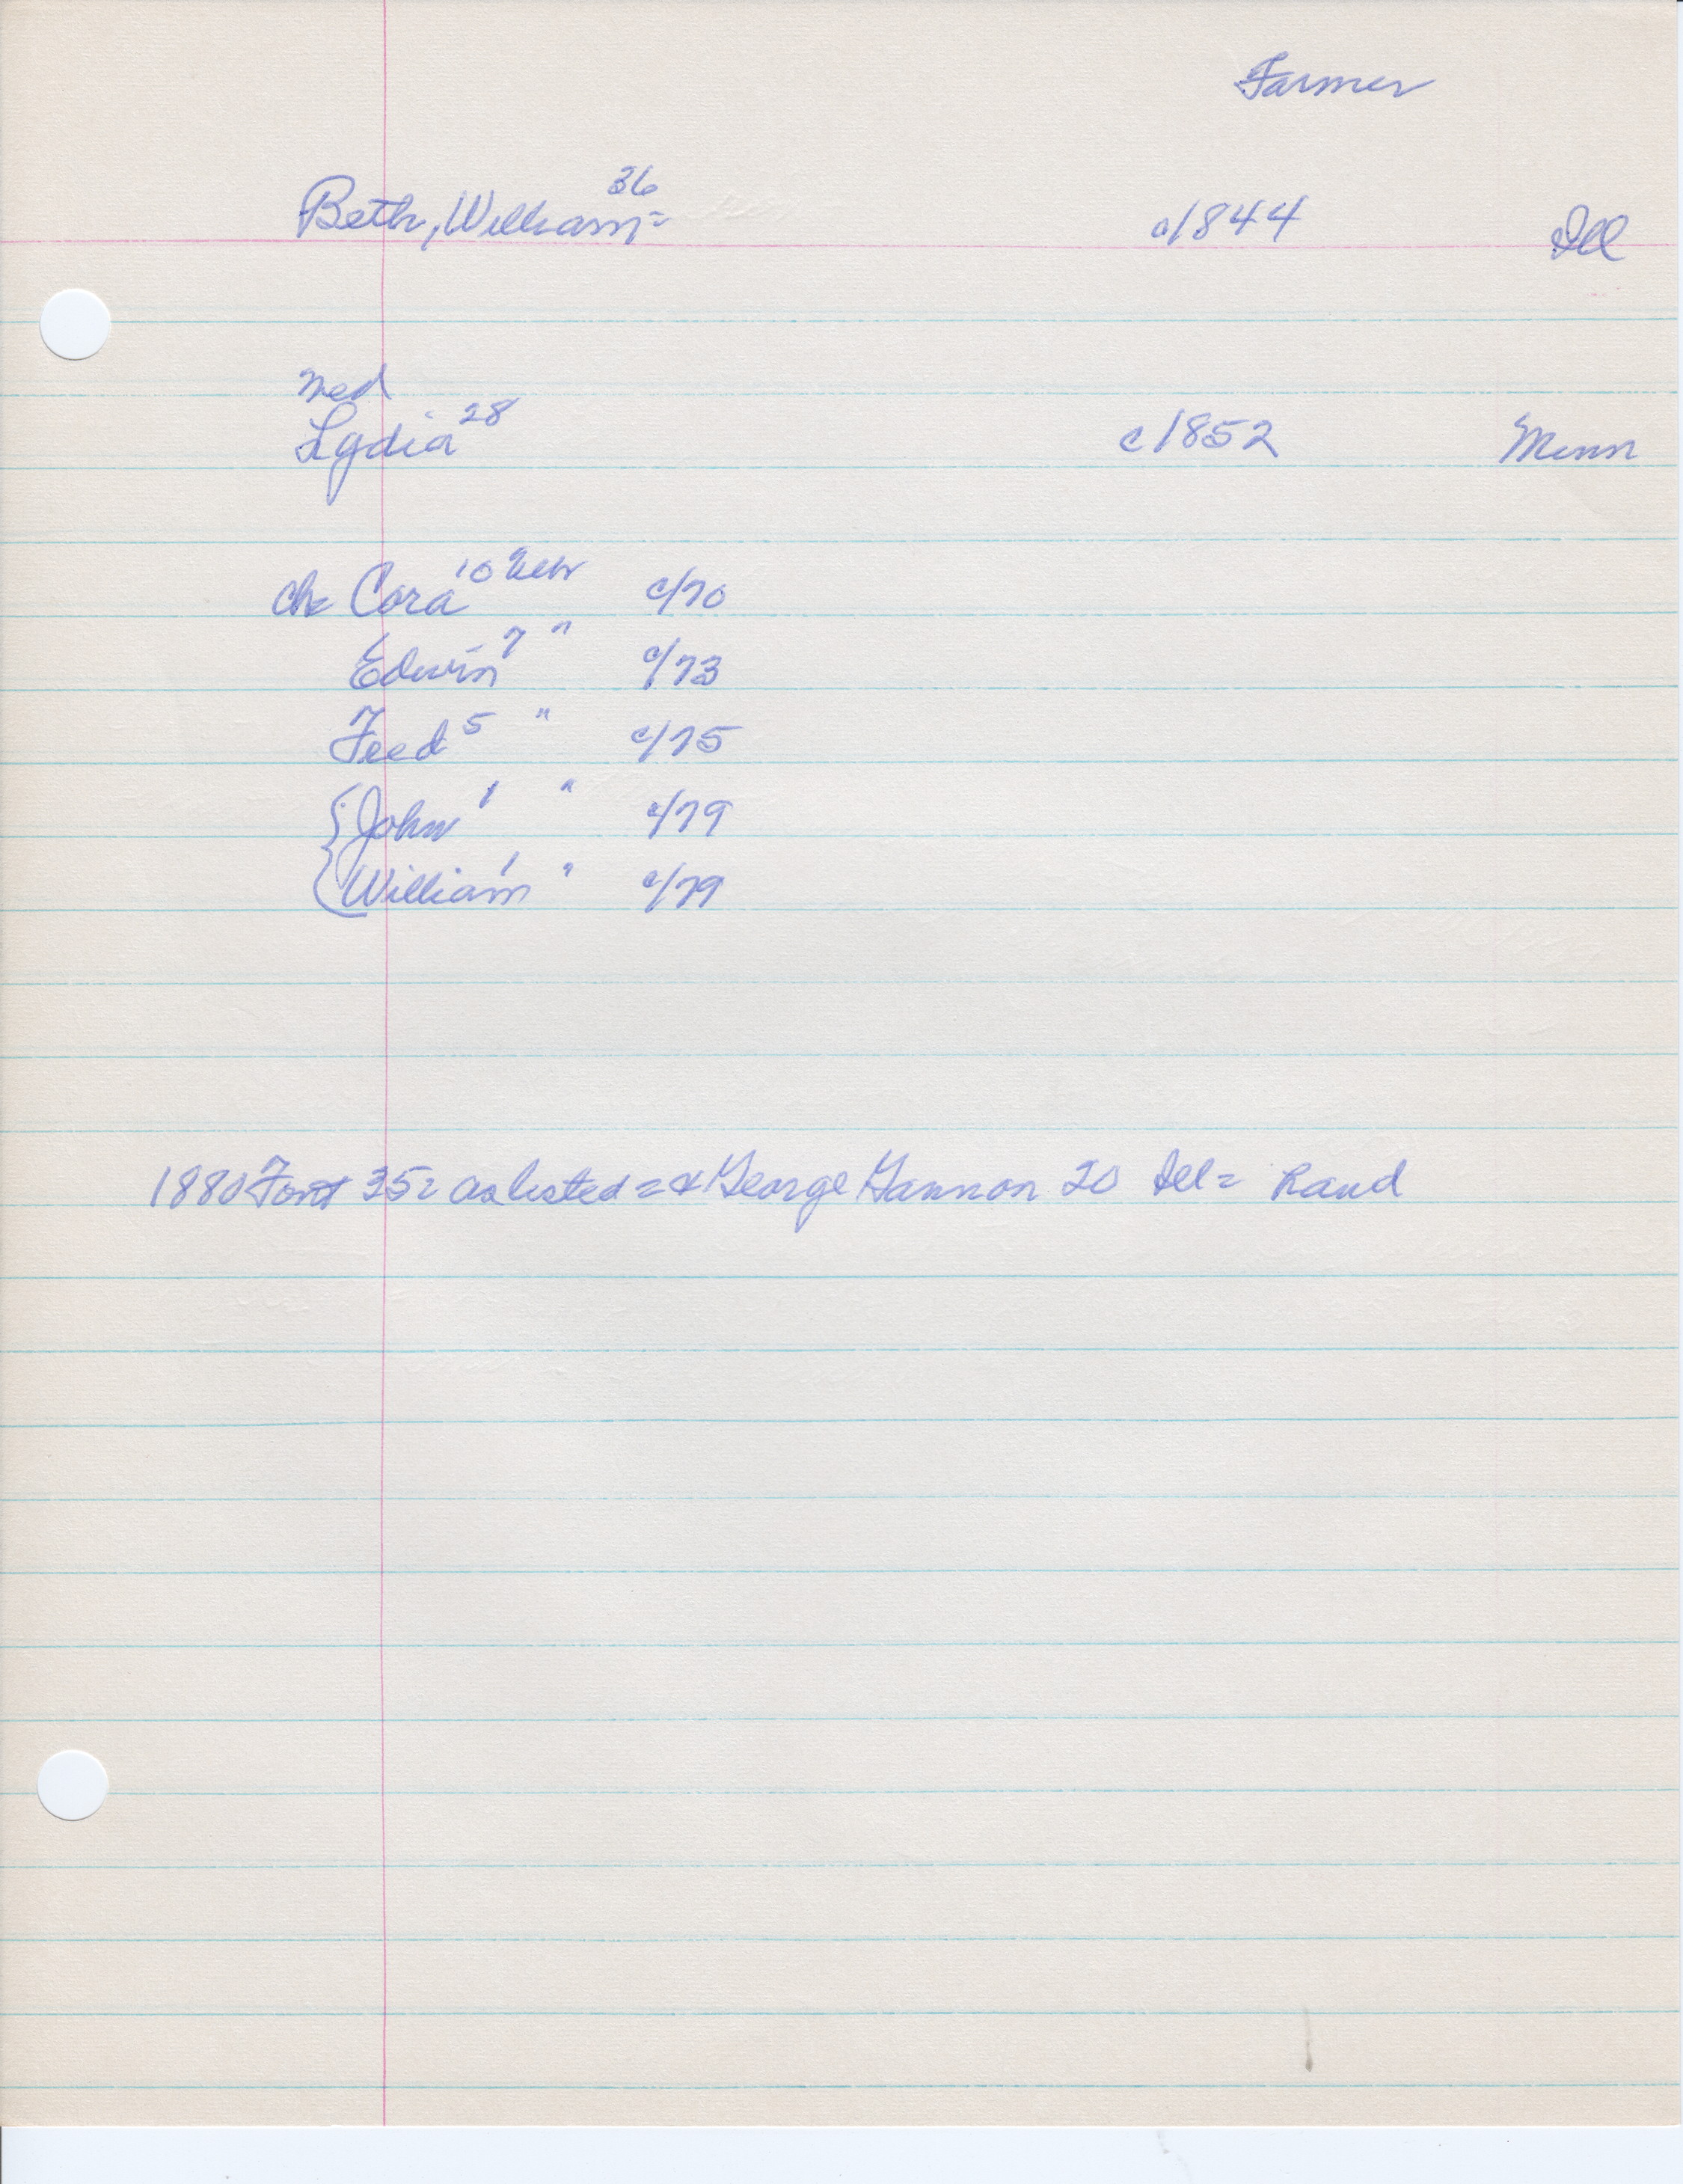 Farmer
Beth, William = 36 c1844 Ill
med
Lydia 28 c1852 Minn
ch Cora 10 Nebr c/70
Edwin 7 " c/73
Fred 5 " c/75
{ John 1 " c/79
{ William 1 " c/79
1880 35= as listed = & George Gannon 20 Ill = Rand